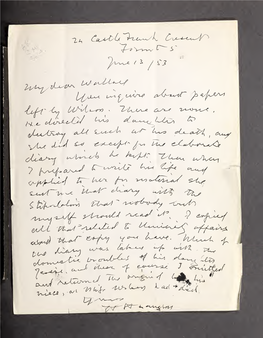 2a Castle Frank Crescent
Toronto 5
June 12/53
My dear Wallace
You inquire about papers
left by Wilson. There are none.
He directed his daughter to
destroy all such at his death, and
she did so except for the elaborate
diary which he kept. Then when
I prepared to write his life and
applied to her for material she
sent me that diary with the
stipulation that "nobody but
myself should read it". I copied
all that related to University affairs
and that copy you have. Much of
the diary was taken up with the
domestic troubles of his daughter
Jessie, and these of course I omitted
and returned the original to his
niece, as Miss Wilson had
Yours
H H Langton